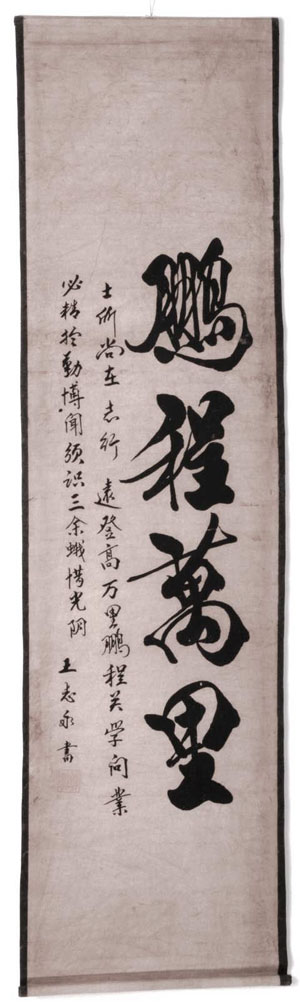 鵬程萬里
士所尚在志行遠登高万里鹏程关学问業
必精於勤博闻须识三余蛾惜光阴
王志永書